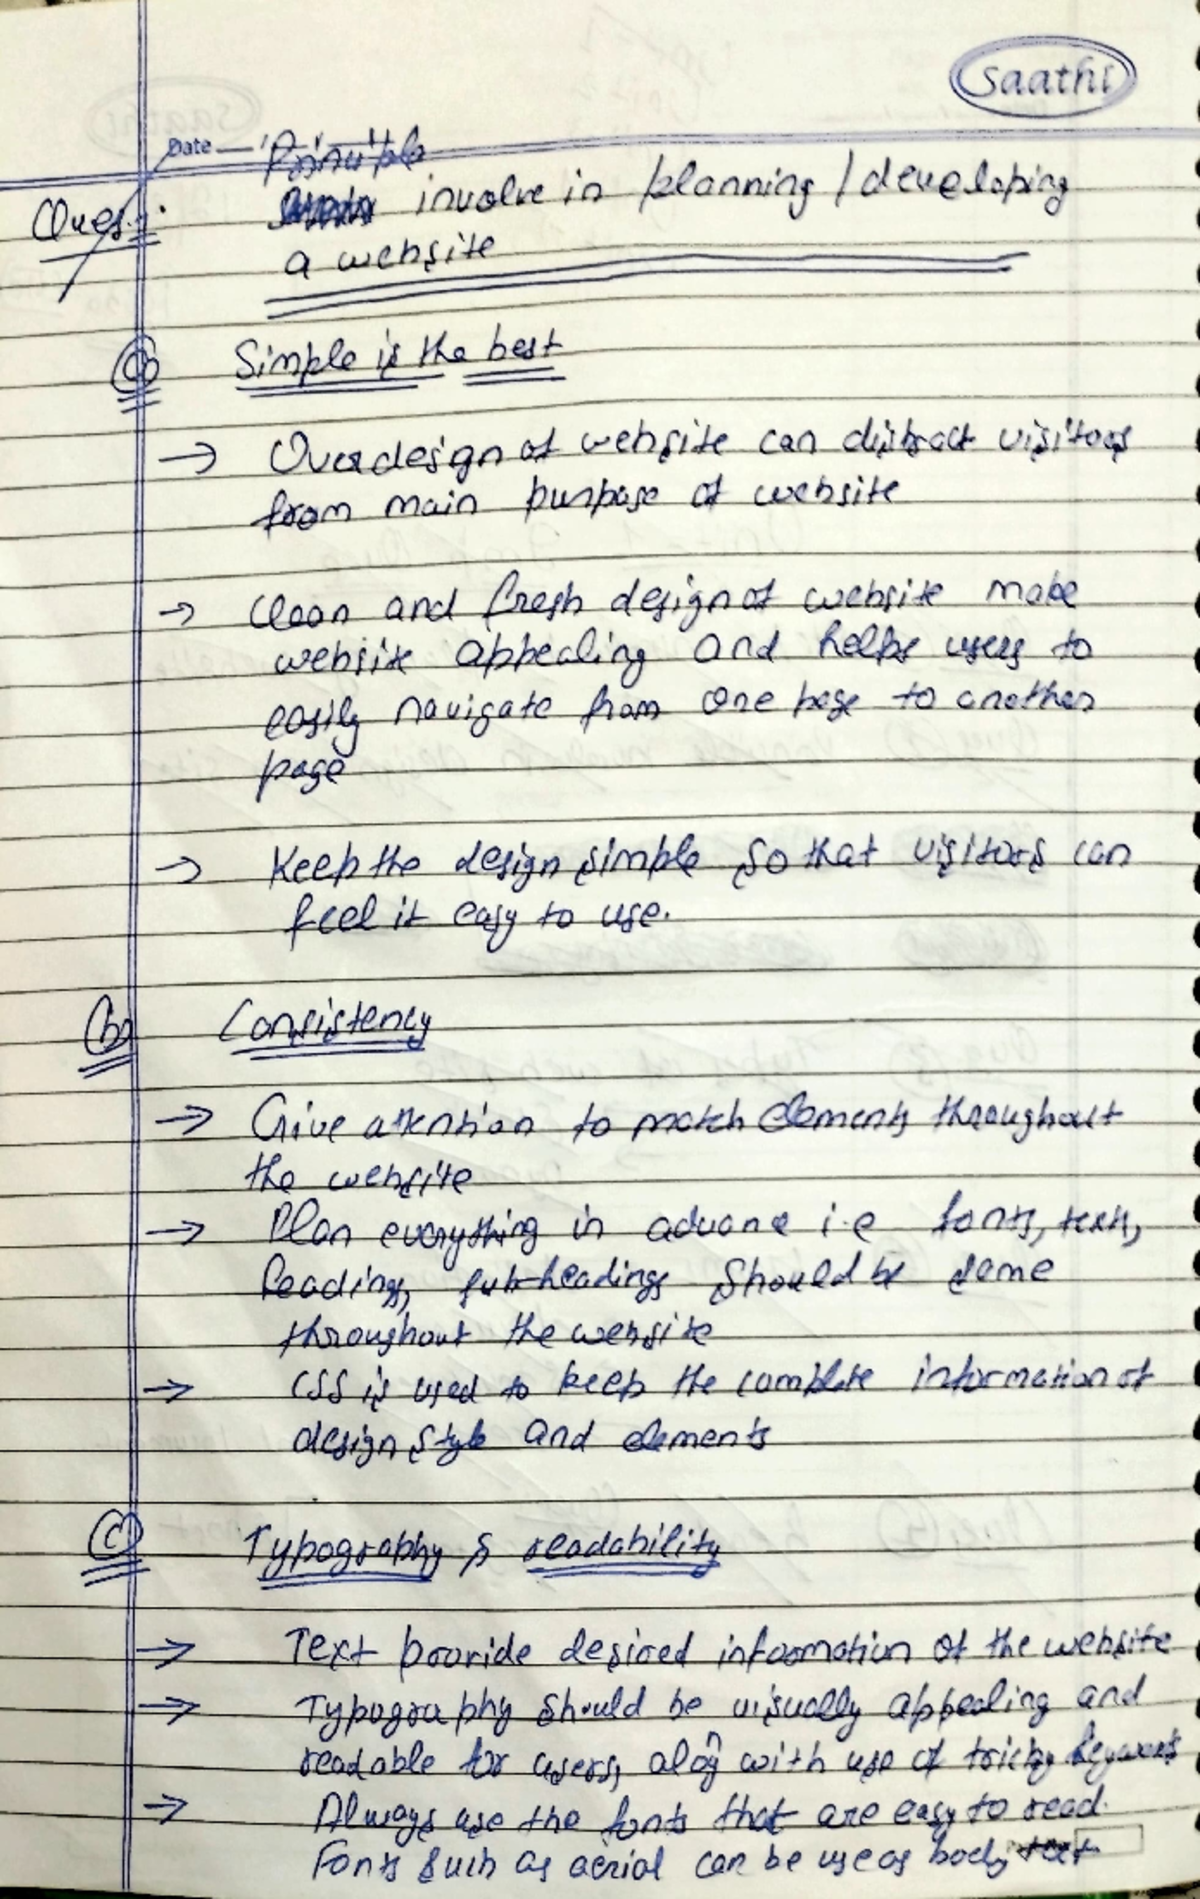 Saathi
Date
Principle
Ques: involve in planning / developing
a website
(a) Simple is the best
→ Overdesign of website can distract visitors
from main purpose of website
→ Clean and fresh design of website make
website appealing and helps users to
easily navigate from one page to another
page
→ Keep the design simple so that visitors can
feel it easy to use.
(b) Consistency
→ Give attention to match elements throughout
the website
→ Plan everything in advance i.e fonts, texts,
headings, sub-headings should be same
throughout the website
→ CSS is used to keep the complete information of
design style and elements
(c) Typography & readability
→ Text provide desired information of the website
→ Typography should be visually appealing and
readable for users, along with use of tricky keywords
→ Always use the fonts that are easy to read.
Fonts such as aerial can be use as body text